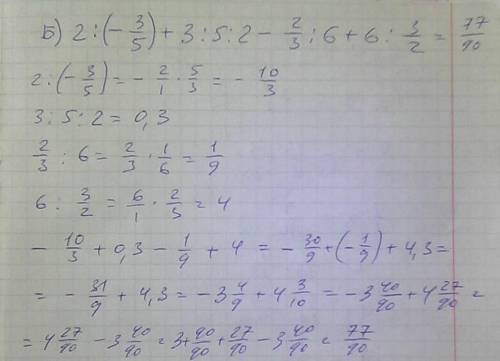 Б) 2:(-3/5)+3:5:2-2/3:6+6:3/2=77/90
2:(-3/5)=-2/1·5/3=-10/3
3:5:2=0,3
2/3:6=2/3·1/6=1/9
6:3/2=6/1·2/3=4
-10/3+0,3-1/9+4=-30/9+(-1/9)+4,3=
=-31/9+4,3=-3 4/9+4 3/10=-3 40/90+4 27/90=
=4 27/90-3 40/90=3+90/90+27/90-3 40/90=77/90